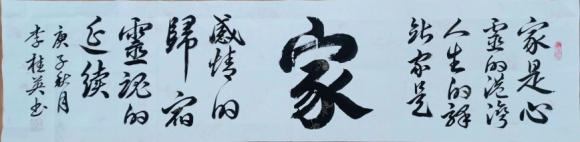 家是心
靈的港灣
人生的驛
站家是
家
感情的
歸宿
靈魂的
延续
庚子秋月
李桂英书